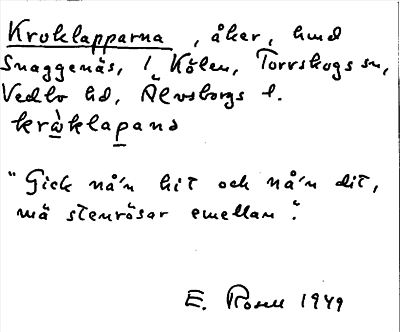 Kroklapparna, åker, hmd
Snaggenäs, 1 Kölen, Torrskogs sn,
Vedbo hd, Älvsborgs l.
kràklapand
"Gick nå'n hit och nå'n dit,
mä stenrösar emellan".
E. Rosell 1949